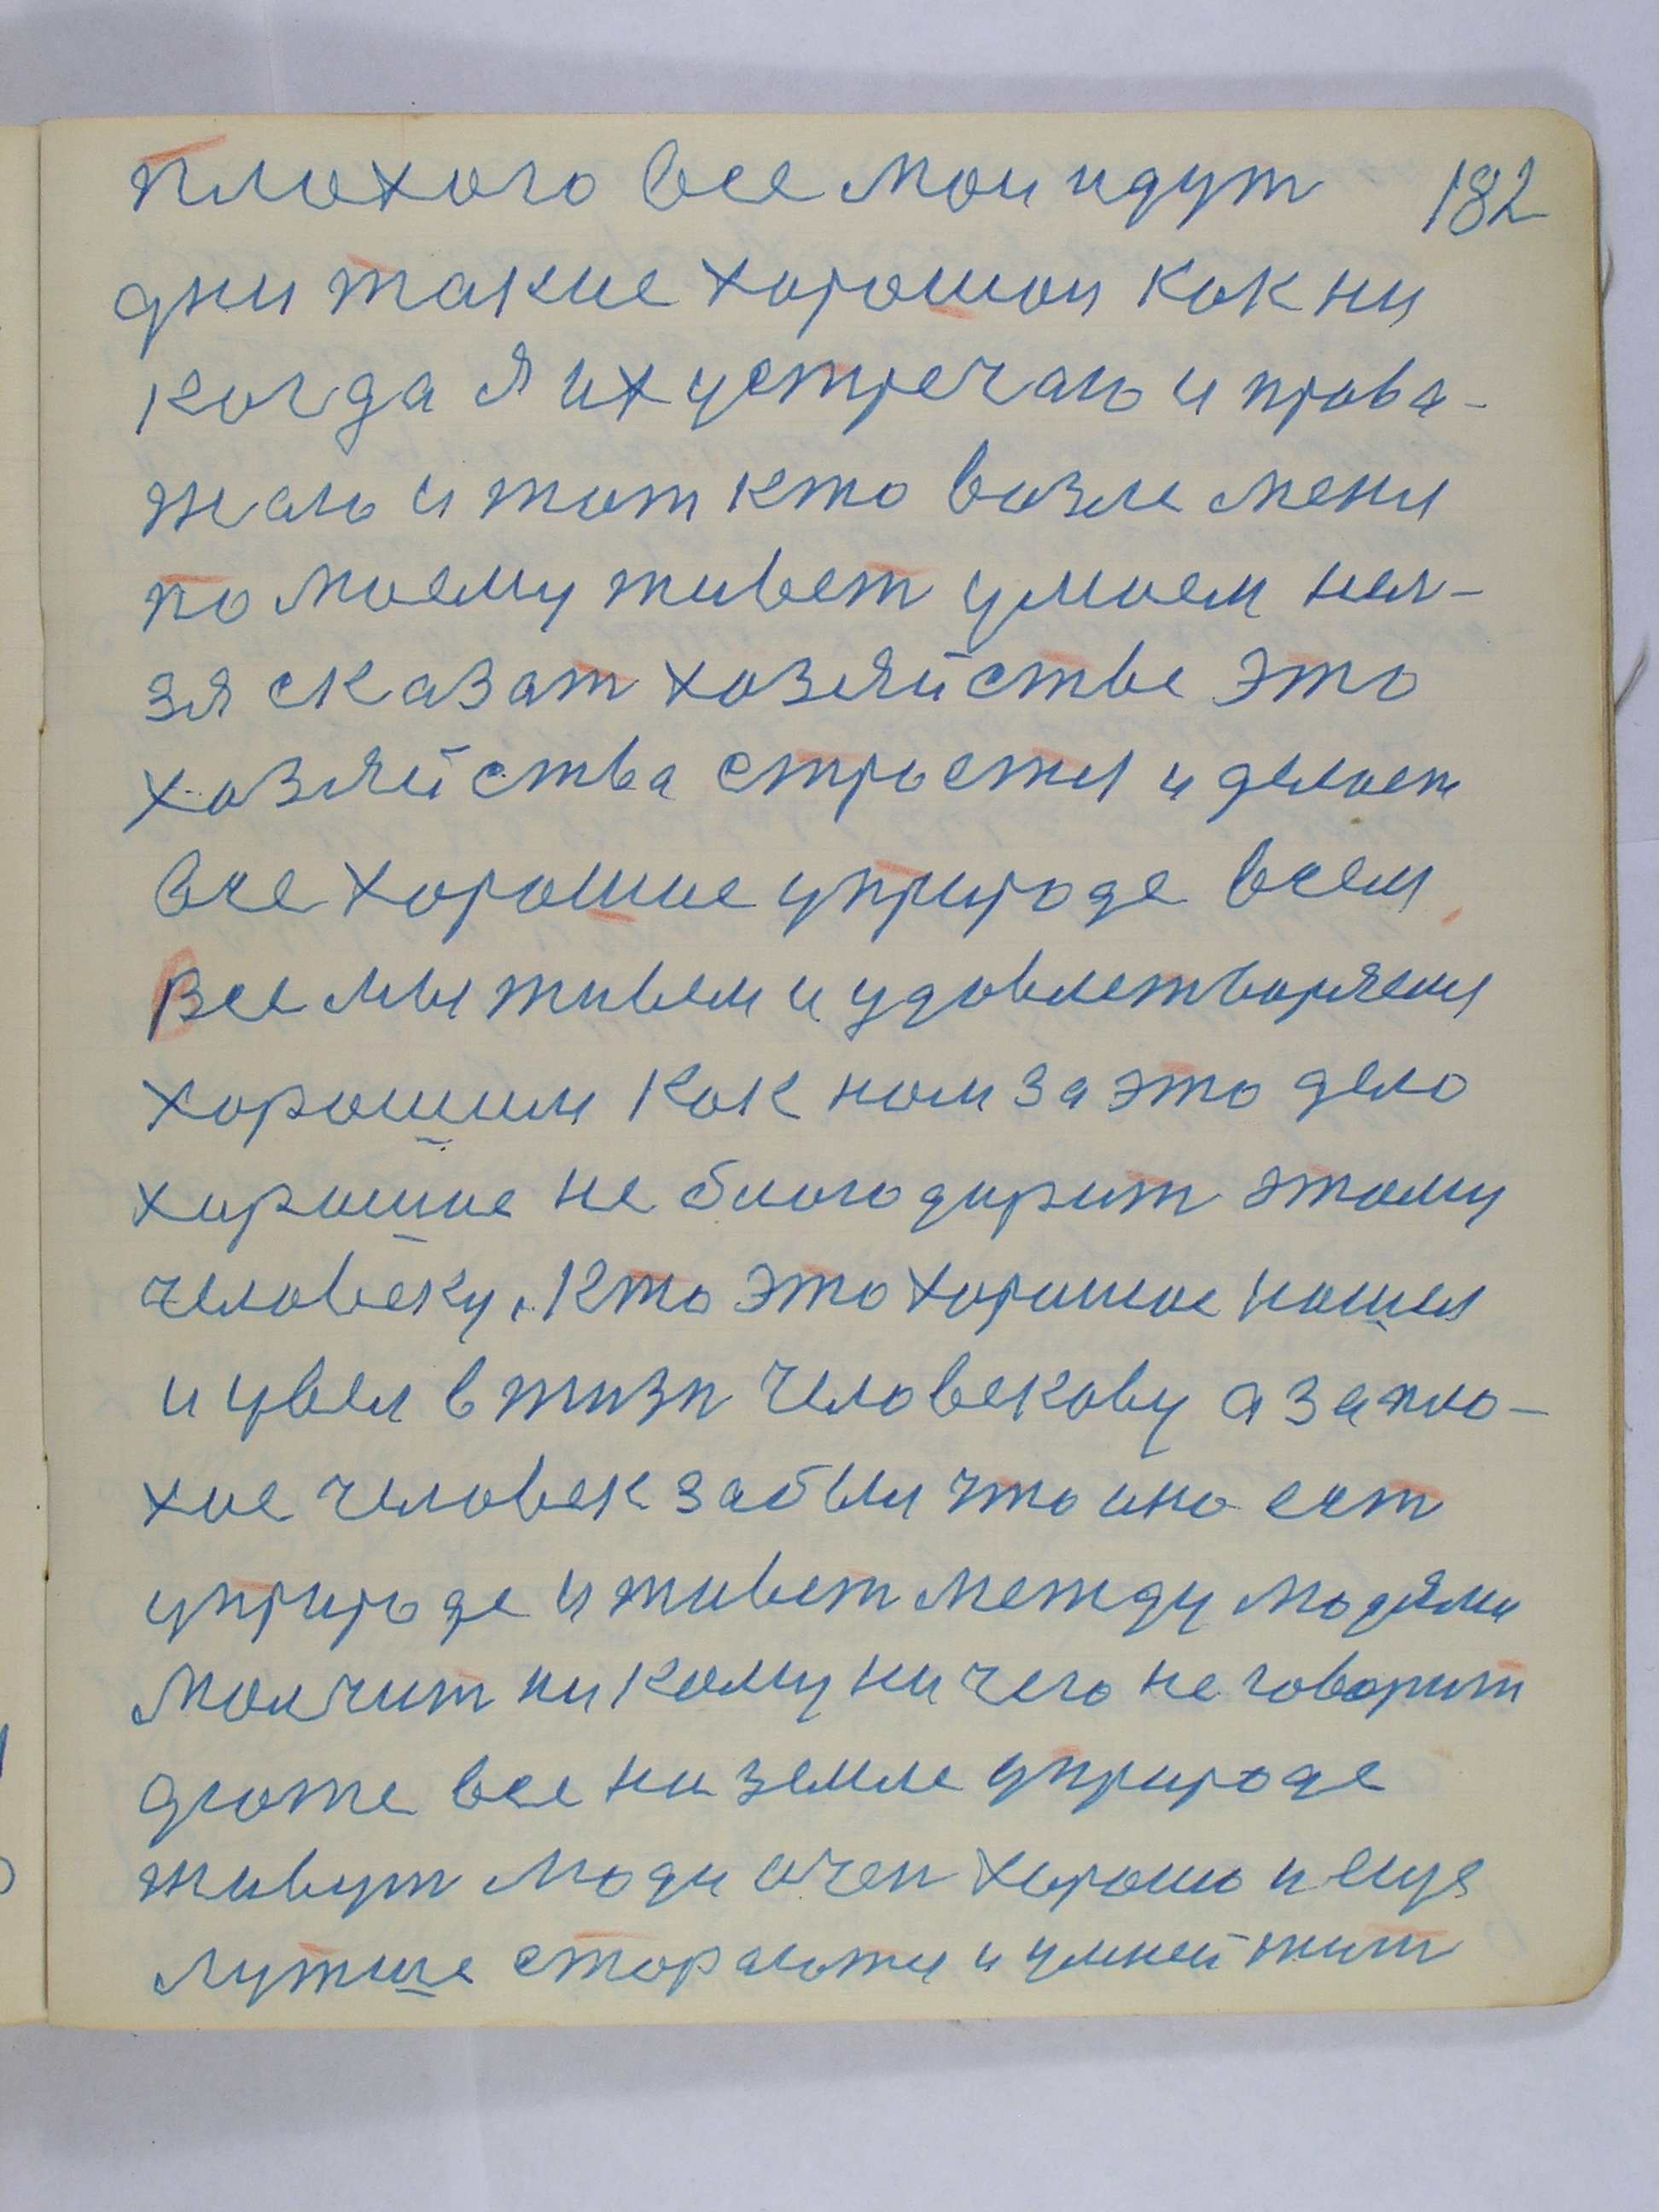 плохого все мои идут 182
дни такие хорошои как ни
когда я их устречаю и прова-
жаю и тот кто возле меня
по моему живет умоем нел-
зя сказат хозяйстве это
хозяйства строется и делает
все хорошие уприроде всем
Все мы живем и удовлетворяемя
хорошим как нам за это дело
хорошие не благодарит этому
человеку, кто это хорошое нашел
и увел в жизн человекову а за пло-
хие человек забыл что оно ест
уприроде и живет между людями
молчит ни кому ни чего не говорит
даже все на земле уприроде
живут люди очен хорошо и еще
лутше стораютя и умней жит